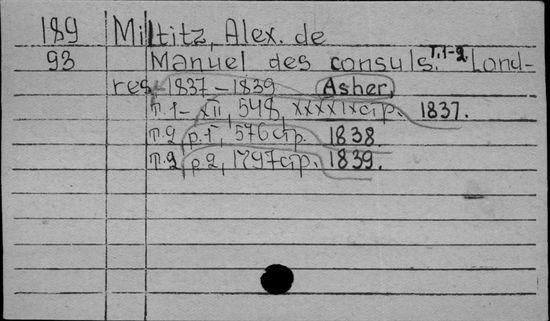 189 Miltitz, Alex. de
93 Manuel des consuls. T.1-2 Lond-
res, 1837-1839 Asher,
т.1- XII, 548, XXXXIXстр. 1837.
т.2, p.1, 576стр. 1838.
т.2, p.2, 1797стр. 1839.